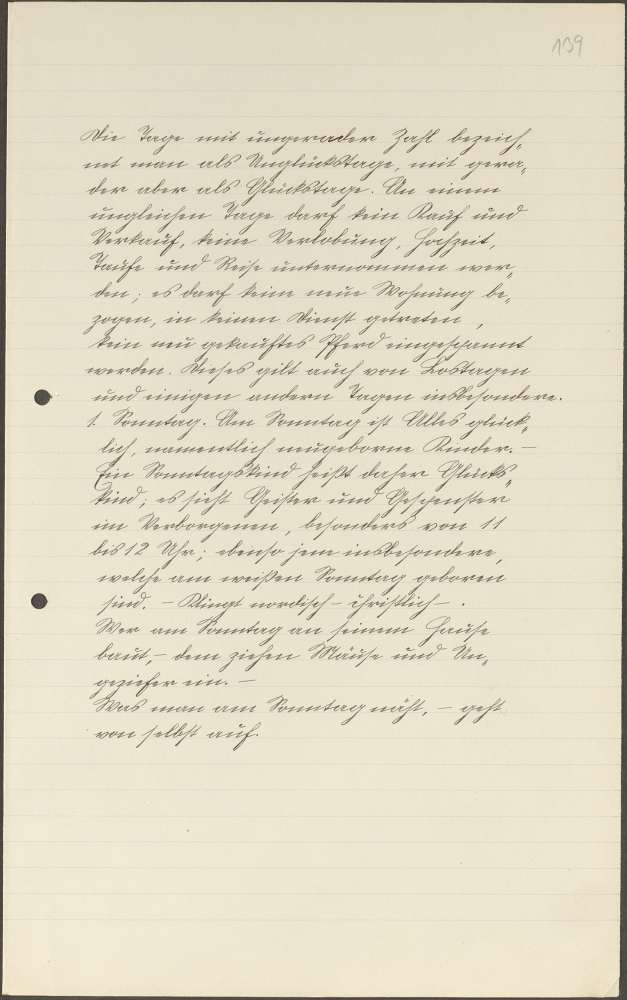 139
Die Tage mit ungerader Zahl bezeich-
net man als Unglückstage, mit gera-
der aber als Glückstage. An einem
ungleichen Tage darf kein Kauf und
Verkauf, keine Verlobung, Hochzeit,
Taufe und Reise unternommen wer-
den; es darf keine neue Wohnung be-
zogen, in keinen Dienst getreten,
kein neu gekauftes Pferd eingespannt
werden. Dieses gilt auch von Lostagen
und einigen andern Tagen insbesondere.
1. Sonntag. Am Sonntag ist Alles glück-
lich, namentlich neugeborne Kinder. -
Ein Sonntagskind heißt daher Glücks-
kind; es sieht Geister und Gespenster
im Verborgenen, besonders von 11
bis 12 Uhr; ebenso jene insbesondere,
welche am weißen Sonntag geboren
sind. - Klingt nordisch - christlich - .
Wer am Sonntag an seinem Hause
baut, - dem ziehen Mäuse und Un-
geziefer ein. -
Was man am Sonntag näht, - geht
von selbst auf.